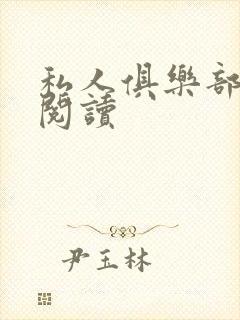 私人俱樂部
閱讀
尹玉林